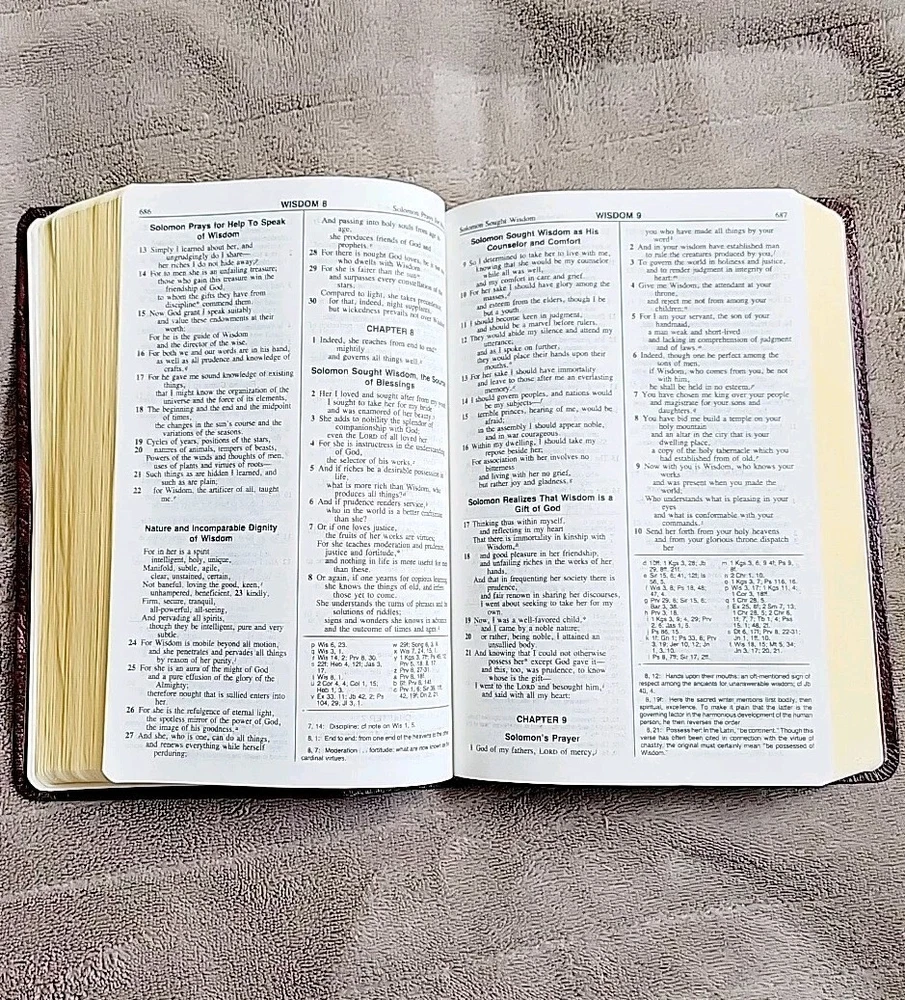 686
WISDOM 8
Solomon Prays for Help To Speak
of Wisdom
13 Simply I learned about her, and
ungrudgingly do I share—
her riches I do not hide away;
14 For to men she is an unfailing treasure;
those who gain this treasure win the
friendship of God,
to whom the gifts they have from
discipline* commend them.
15 Now God grant I speak suitably
and value these endowments at their
worth:
For he is the guide of Wisdom
and the director of the wise.
16 For both we and our words are in his hand,
as well as all prudence and knowledge of
crafts.
17 For he gave me sound knowledge of existing
things,
that I might know the organization of the
universe and the force of its elements,
18 The beginning and the end and the midpoint
of times,
the changes in the sun's course and the
variations of the seasons.
19 Cycles of years, positions of the stars,
20 natures of animals, tempers of beasts,
Powers of the winds and thoughts of men,
uses of plants and virtues of roots—
21 Such things as are hidden I learned, and
such as are plain;
22 for Wisdom, the artificer of all, taught
me.
Nature and Incomparable Dignity
of Wisdom
For in her is a spirit
intelligent, holy, unique,
Manifold, subtle, agile,
clear, unstained, certain,
Not baneful, loving the good, keen,
unhampered, beneficent, 23 kindly,
Firm, secure, tranquil,
all-powerful, all-seeing,
And pervading all spirits,
though they be intelligent, pure and very
subtle.
24 For Wisdom is mobile beyond all motion,
and she penetrates and pervades all things
by reason of her purity.
25 For she is an aura of the might of God
and a pure effusion of the glory of the
Almighty;
therefore nought that is sullied enters into
her.
26 For she is the refulgence of eternal light,
the spotless mirror of the power of God,
the image of his goodness.
27 And she, who is one, can do all things,
and renews everything while herself
perduring;
And passing into holy souls from age to
age,
she produces friends of God and
prophets.
28 For there is nought God loves, be it not one
who dwells with Wisdom.
29 For she is fairer than the sun
and surpasses every constellation of the
stars.
Compared to light, she takes precedence;
30 for that, indeed, night supplants,
but wickedness prevails not over Wisdom.
CHAPTER 8
1 Indeed, she reaches from end to end
mightily
and governs all things well.
Solomon Sought Wisdom, the Source
of Blessings
2 Her I loved and sought after from my
I sought to take her for my bride
and was enamored of her beauty.
3 She adds to nobility the splendor of
companionship with God;
even the LORD of all loved her.
4 For she is instructress in the understanding
of God,
the selector of his works.
5 And if riches be a desirable possession in
life,
what is more rich than Wisdom, who
produces all things?
6 And if prudence renders service,
who in the world is a better craftsman
than she?
7 Or if one loves justice,
the fruits of her works are virtues;
For she teaches moderation and prudence,
justice and fortitude,*
and nothing in life is more useful for men
than these.
8 Or again, if one yearns for copious learning,
she knows the things of old, and infers
those yet to come.
She understands the turns of phrases and the
solutions of riddles;
signs and wonders she knows in advance
and the outcome of times and ages.
7, 14: Discipline: cf note on Wis 1, 5.
8, 1: End to end: from one end of the heavens to the other.
8, 7: Moderation . . . fortitude: what are now known as the
cardinal virtues.
Solomon Sought Wisdom
WISDOM 9
687
Solomon Sought Wisdom as His
Counselor and Comfort
9 So I determined to take her to live with me,
knowing that she would be my counselor
while all was well,
and my comfort in care and grief.
10 For her sake I should have glory among the
masses,
and esteem from the elders, though I be
but a youth.
11 I should become keen in judgment,
and should be a marvel before rulers.
12 They would abide my silence and attend my
utterance;
and as I spoke on further,
they would place their hands upon their
mouths.*
13 For her sake I should have immortality
and leave to those after me an everlasting
memory.
14 I should govern peoples, and nations would
be my subjects—
15 terrible princes, hearing of me, would be
afraid;
in the assembly I should appear noble,
and in war courageous.
16 Within my dwelling, I should take my
repose beside her;
For association with her involves no
bitterness
and living with her no grief,
but rather joy and gladness.
Solomon Realizes That Wisdom is a
Gift of God
17 Thinking thus within myself,
and reflecting in my heart
That there is immortality in kinship with
Wisdom,
18 and good pleasure in her friendship,
and unfailing riches in the works of her
hands,
And that in frequenting her society there is
prudence,
and fair renown in sharing her discourses,
I went about seeking to take her for my
own.
19 Now, I was a well-favored child,*
and I came by a noble nature;
20 or rather, being noble, I attained an
unsullied body.
21 And knowing that I could not otherwise
possess her* except God gave it—
and this, too, was prudence, to know
whose is the gift—
I went to the LORD and besought him,
and said with all my heart:
CHAPTER 9
Solomon's Prayer
1 God of my fathers, LORD of mercy,
you who have made all things by your
word
2 And in your wisdom have established man
to rule the creatures produced by you,
3 To govern the world in holiness and justice,
and to render judgment in integrity of
heart:
4 Give me Wisdom, the attendant at your
throne,
and reject me not from among your
children;
5 For I am your servant, the son of your
handmaid,
a man weak and short-lived
and lacking in comprehension of judgment
and of laws.
6 Indeed, though one be perfect among the
sons of men,
if Wisdom, who comes from you, be not
with him,
he shall be held in no esteem.
7 You have chosen me king over your people
and magistrate for your sons and
daughters.
8 You have bid me build a temple on your
holy mountain
and an altar in the city that is your
dwelling place,
a copy of the holy tabernacle which you
had established from of old.
9 Now with you is Wisdom, who knows your
works
and was present when you made the
world;
Who understands what is pleasing in your
eyes
and what is conformable with your
commands.
10 Send her forth from your holy heavens
and from your glorious throne dispatch
her
8, 12: Hands upon their mouths: an oft-mentioned sign of
respect among the ancients for unanswerable wisdom; cf Jb
40, 4.
8, 19f: Here the sacred writer mentions first bodily, then
spiritual, excellence. To make it plain that the latter is the
governing factor in the harmonious development of the human
person, he then reverses the order.
8, 21: Possess her: in the Latin, "be continent." Though this
verse has often been cited in connection with the virtue of
chastity, the original must certainly mean "be possessed of
Wisdom."